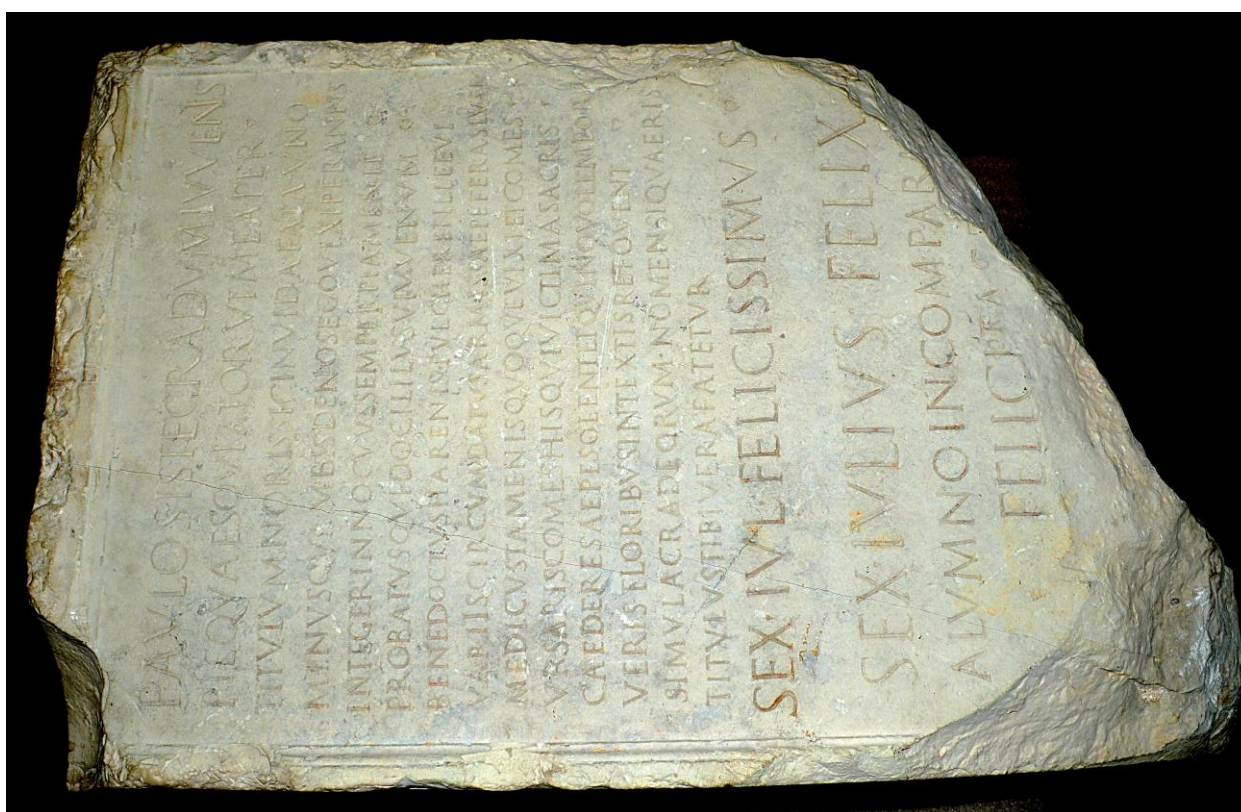 PAVLO SISTE GRADVM IVVENIS
PIE QVAESO VIATOR VT MEA PER
TITVLVM NORIS SIC INVIDA FATA VNO
MINVS QVAM BIS DENOS EGO VIXI PER ANNOS
INTEGER INNOCVVS SEMPER PIA MENTE
PROBATVS QVI DOCILI LVSV IVVENVM
BENE DOCTVS HARENIS PVLCHER ET ILLE FVI
VARIIS CIRCVMDATVS ARMIS SAEPE FERAS LVSI
MEDICVS TAMEN IS QVOQVE VIXI ET COMES
VRSARIS COMES HIS QVI VICTIMA SACRIS
CAEDERE SAEPE SOLENT ET QVI NOVO TEMPOR
VERIS FLORIBVS INTEXTIS REFOVENT
SIMVLACRA DEORVM·NOMEN SI QVAERIS
TITVLVS TIBI VERA FATETVR
SEX·IVL·FELICISSIMVS
SEX·IVLIVS·FELIX
ALVMNO INCOMPAR
FELICITAS